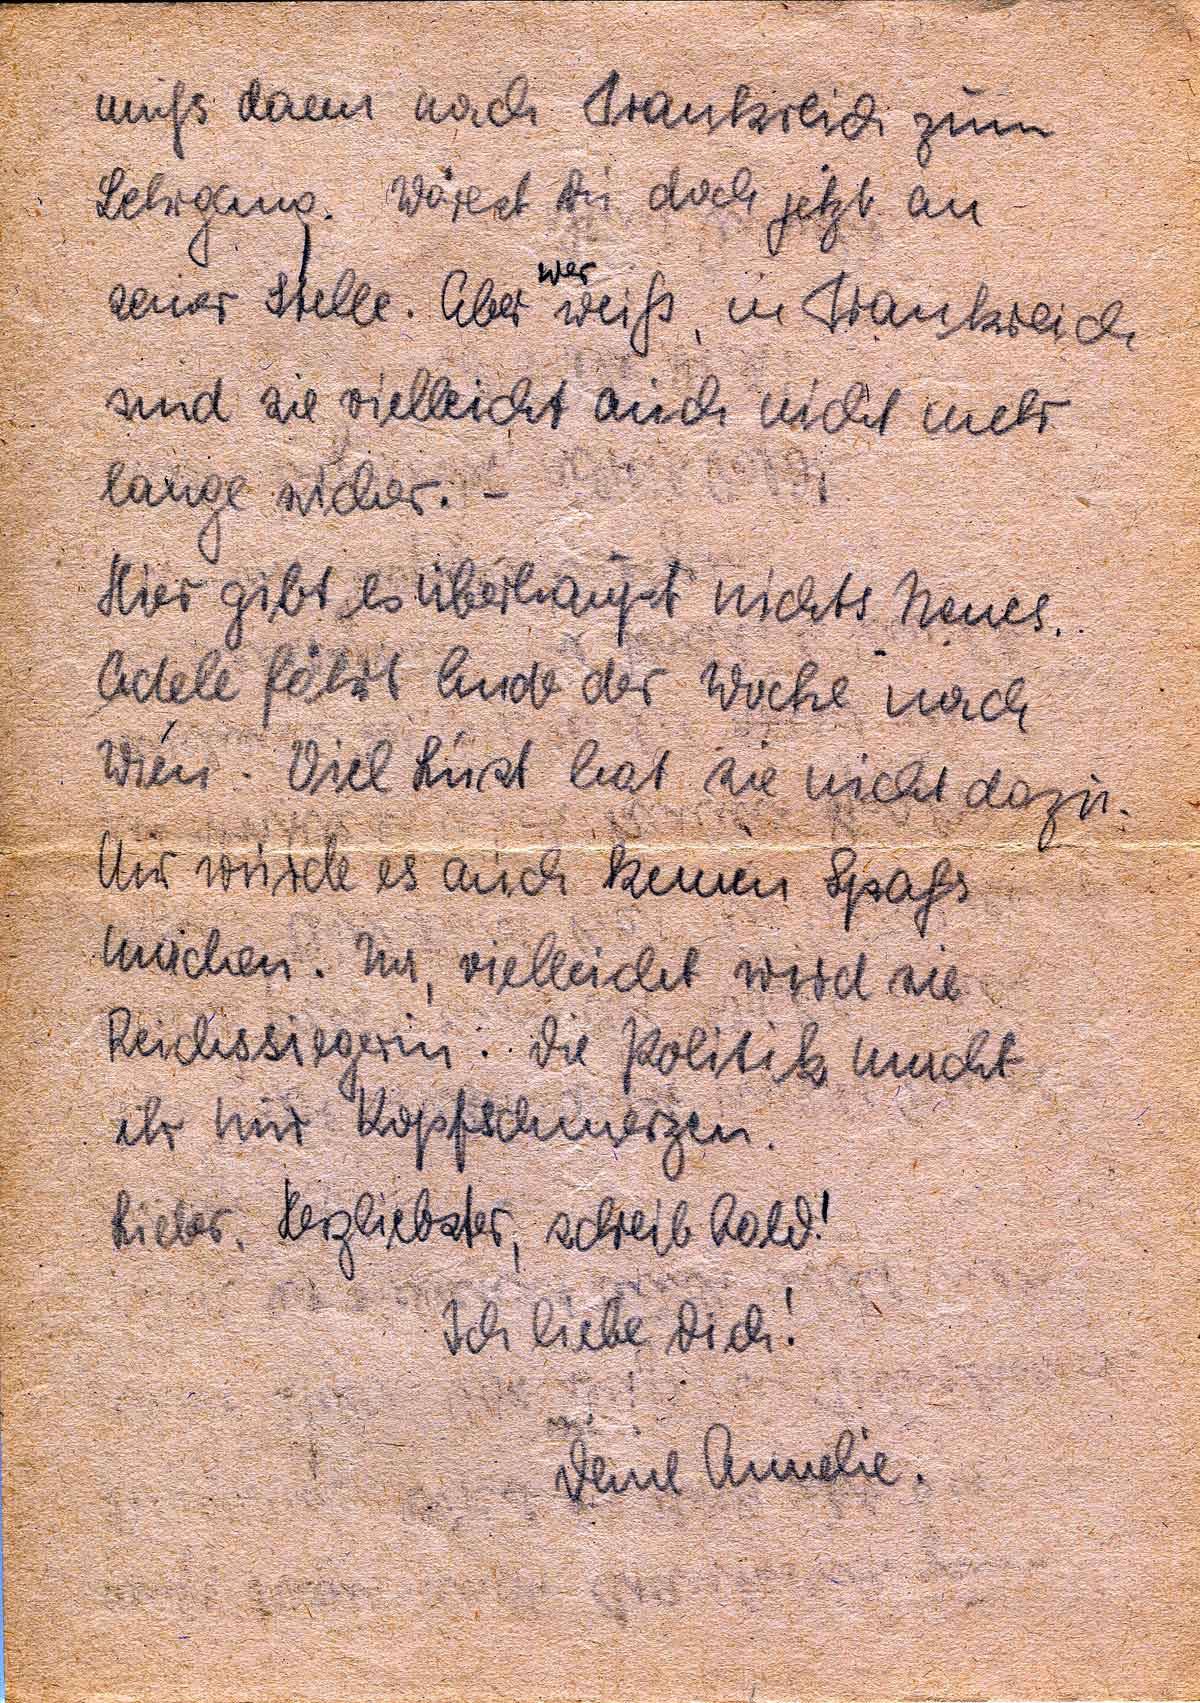 muß dann nach Frankreich zum
Lehrgang. Wärest Du doch jetzt an
seiner Stelle. Aber wer weiß, in Frankreich
sind sie vielleicht auch nicht mehr
lange sicher. –
Hier gibt es überhaupt nichts Neues.
Adele fährt Ende der Woche nach
Wien. Viel Lust hat sie nicht dazu.
Mir würde es auch keinen Spaß
machen. Na, vielleicht wird sie
Reichssiegerin. Die Politik macht
ihr nur Kopfschmerzen.
Lieber, Herzliebster, schreib bald!
Ich liebe Dich!
Deine Annelie.